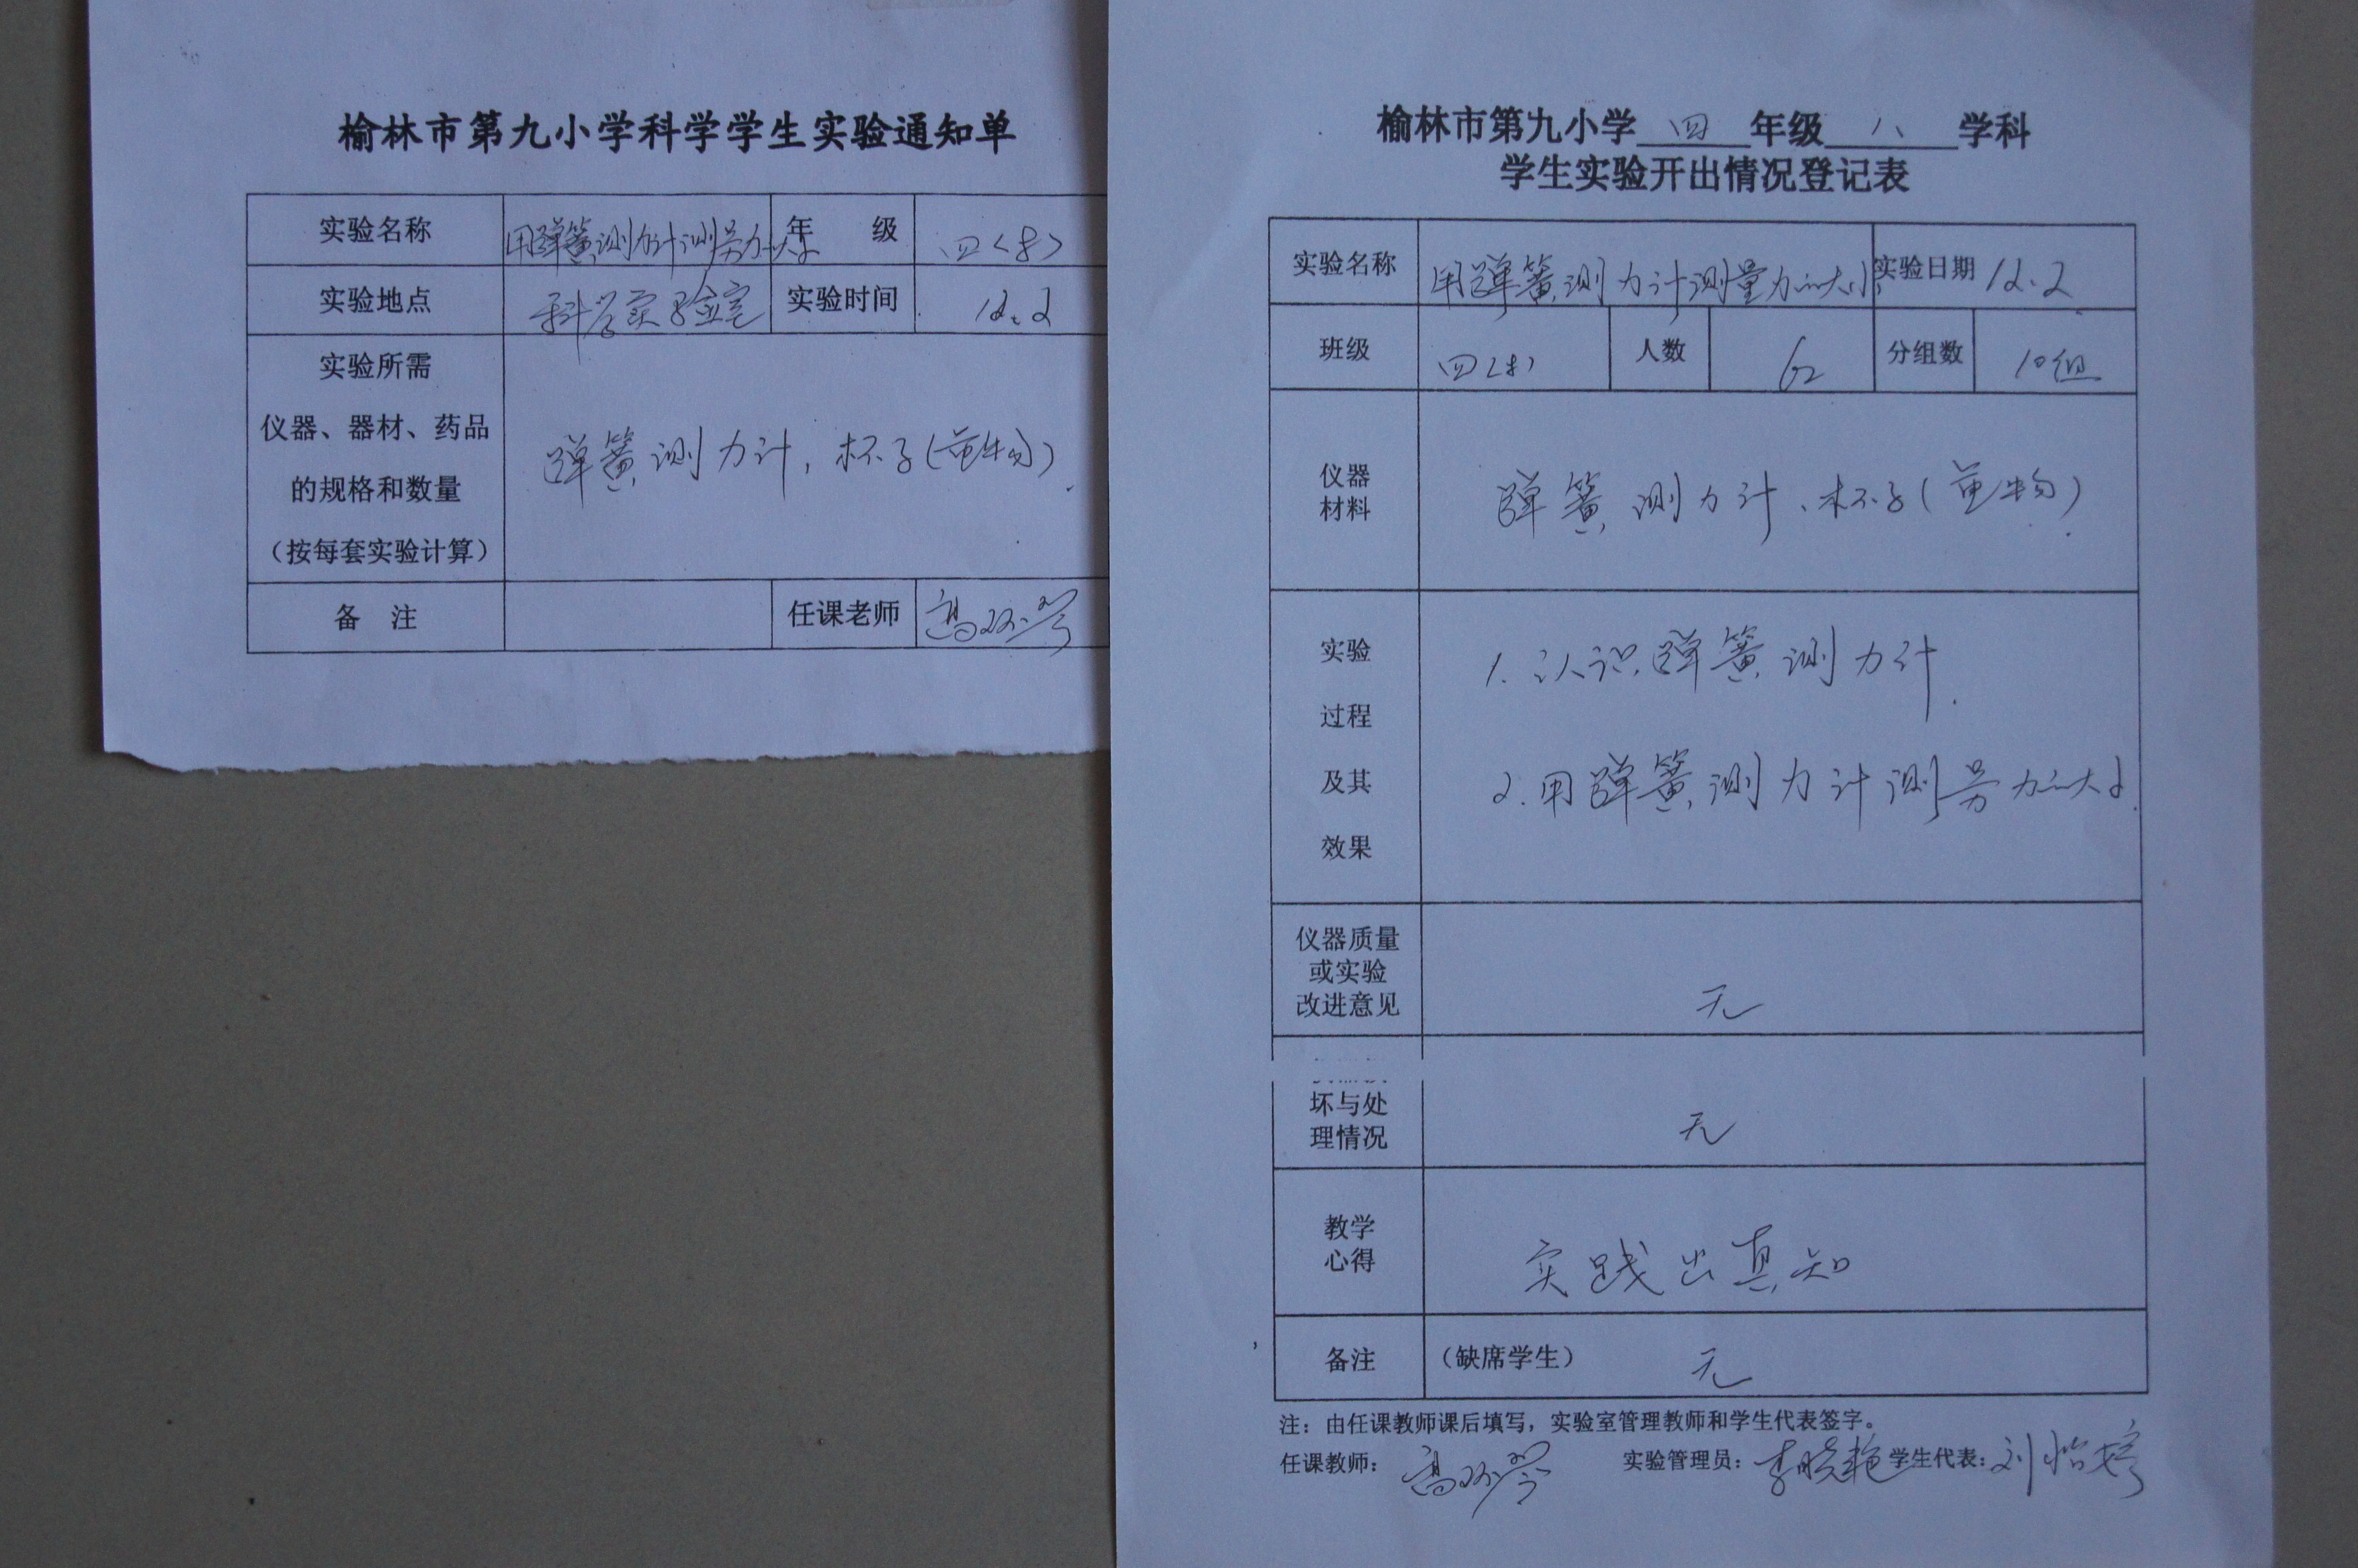 榆林市第九小学科学学生实验通知单
实验名称 用弹簧测力计测量力的大小 年 级 四
实验地点 科学实验室 实验时间 12.2
实验所需
仪器、器材、药品
的规格和数量
（按每套实验计算）
弹簧测力计，杯子（重物）
备 注 任课老师
榆林市第九小学 四 年级 八 学科
学生实验开出情况登记表
实验名称 用弹簧测力计测量力的大小 实验日期 12.2
班级 四 人数 62 分组数 10组
仪器
材料
弹簧测力计、杯子（重物）
实验
过程
及其
效果
1.认识弹簧测力计
2.用弹簧测力计测量力的大小
仪器质量
或实验
改进意见
无
坏与处
理情况
无
教学
心得
实践出真知
备注 （缺席学生） 无
注：由任课教师课后填写，实验室管理教师和学生代表签字。
任课教师： 实验管理员：李晓艳 学生代表：刘怡婷